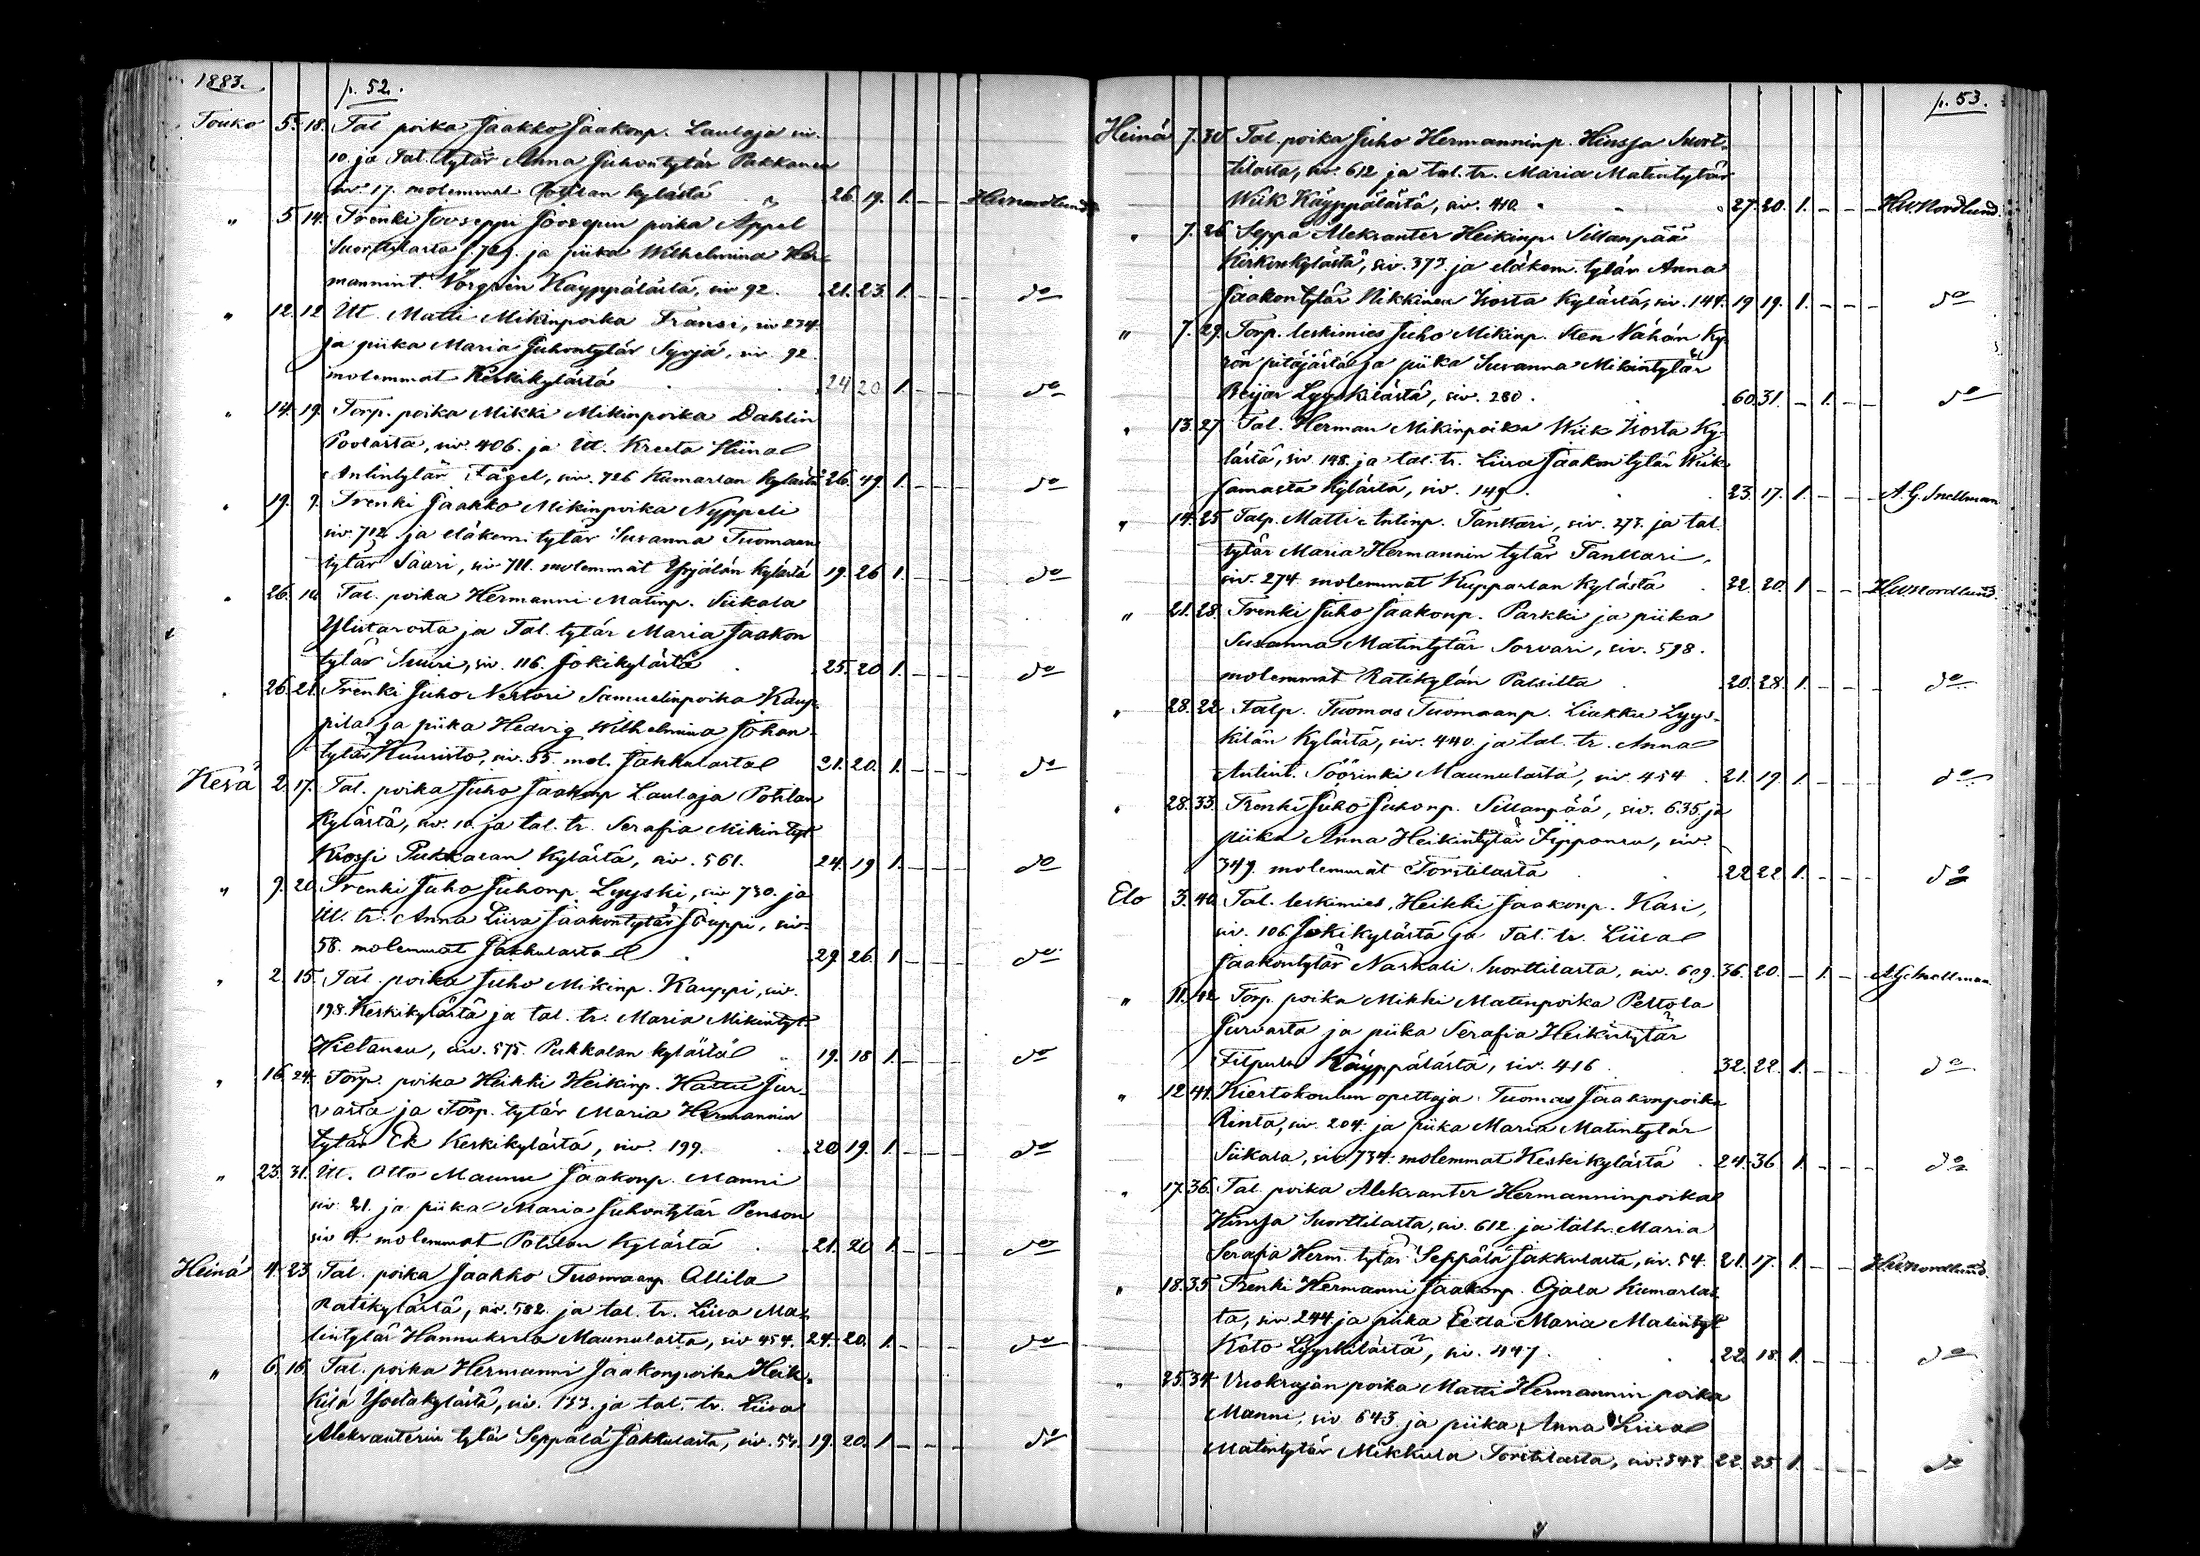 1883. p. 52.
Touko 5. 18. Tal. poika Jaakko Jaakonp. Laulaja siv.
10. ja Tal. tytär Anna Juhontytär Pakkanen
siv. 17. molemmat Pohlan kylästä 26. 19. 1. — — HWnordlund
" 5. 14. Trenki Jooseppi Joosepin poika Äppel
Suorttilasta f. 729. ja piika Wilhelmina Her-
mannint. Norgrén Käyppälästä, siv 92. 21. 23. 1. — — — do
" 12. 12 Itt. Matti Mikinpoika Fransi, siv 234.
ja piika Maria Juhontytär Syrjä, siv. 92
molemmat Keskikylästä 24 20 1. — — — do
" 14. 19. Torp. poika Mikki Mikinpoika Dahlin
siv. 406. ja Itt. Kreeta Hiina
Antintytär Fågel, siv. 726 Kumarlan kylästä 26. 49. 1. — — — do
" 19. 9. Trenki Jaakko Mikinpoika Nyppeli
siv. 712 ja eläkem. tytär Susanna Tuomaan
tytär Saari, siv 711. molemmat Yrjälän kylästä 19. 26 1. — — — do
" 26. Tal. poika Hermanni Matinp. Siikala
Ylistarosta ja Tal. tytär Maria Jaakon
tytär Suuri, siv. 116. Jokikylästä 25. 20 1. — — — do
" 26. 21. Trenki Juho Nestori Samuelinpoika Kaup-
pila ja piika Hedvig Wilhelmina Johan
tytär Kuusisto, siv. 55. mol. Jakkulasta 21. 20. 1. — — — do
Kesä 2. 17. Tal. poika Juho Jaakonp Laulaja Pohlan
Kylästä, siv. 10. ja tal. tr. Serafia Mikintyt
Krossi Pukkalan Kylästä, siv. 561. 24. 19 1. — — — do
" 9. 20. Trenki Juho Juhonp. Lyyski, siv 730. ja
Itt. tr. Anna Liisa Jaakontytär Jouppi, siv.
58. molemmat Jakkulasta 29. 26. 1 — — — do
" 2. 15. Tal. poika Juho Mikinp. Kauppi, siv.
198. Keskikylästä ja tal. tr. Maria Mikintyt.
Hietanen, siv. 575. Pukkalan kylästä 19. 18 1. — — — do
" 16. 24. Torp. poika Heikki Heikinp. Hattu Jur-
vasta ja Torp. tytär Maria Hermannin
tytär Ek Keskikylästä, siv. 199. 20 19. 1. — — — do
" 23. 31. Itt. Otto Maunu Jaakonp. Manni
siv. 21. ja piika Maria Juhontytär Penson
siv 4. molemmat Pohlan Kylästä 21. 20 1. — — — do
Heinä 4. 23 Tal. poika Jaakko Tuomaanp Ollila
Ratikylästä, siv. 582. ja tal. tr. Liisa Ma-
tintytär Hannuksela Maunulasta, siv 454. 24. 20. 1. — — — do
" 6. 16. Tal. poika Hermanni Jaakonpoika Heik-
kilä siv. 153. ja tal. tr. Liisa
Aleksanterin tytär Seppälä Jakkulasta, siv. 54. 19. 20. 1 — — — do
p. 53.
Heinä 7. 30. Tal. poika Juho Hermanninp. Hinssa Suort-
tilasta, siv. 612 ja tal. tr. Maria Matintytär
Wiik Käyppälästä, siv. 410. 27. 20. 1. — — — HWNordlund.
" 7. 26 Seppä Aleksanter Heikinp. Sillanpää
Kirkonkylästä, siv. 373. ja eläkem. tytär Anna
Jaakontytär Nikkinen Isosta Kylästä, siv. 144. 19 19. 1. — — — do
" 7. 29. Torp. leskimies Juho Mikinp. Sten Vähän Ky-
rön pitäjästä ja piika Susanna Mikintytär
Reijas Lyyskilästä, siv. 280. 60. 31. — 1. — — do
" 13. 27. Tal. Herman Mikinpoika Wiik Isosta Ky-
lästä, siv. 148. ja tal. tr. Liisa Jaakontytär Wiik
samasta Kylästä, siv. 149. 23. 17. 1. — — — A. G. Snellman
" 14. 25 Talp. Matti Antinp. Tanttari, siv. 273. ja tal.
tytär Maria Hermannin tytär Tanttari,
siv. 274. molemmat Kupparlan Kylästä 22. 20. 1 — — HWNordlund.
" 21. 28. Trenki Juho Jaakonp. Parkki ja piika
Susanna Matintytär Sorvari, siv. 598.
molemmat Ratikylän Palsilta 20. 28. 1. — — — do
" 28. 22 Talp. Tuomas Tuomaanp. Liukku Lyys-
kilän Kylästä, siv. 440. ja tal. tr. Anna
Antint. Söörinki Maunulasta, siv. 454 21. 19 1. — — — do
" 28. 33. Trenki Juho Juhonp. Sillanpää, siv. 635. ja
piika Anna Heikintytär siv.
349. molemmat Torstilasta 22 22 1. — — — do
Elo 3. 40. Tal. leskimies, Heikki Jaakonp. Kasi,
siv. 106. Jokikylästä ja Tal. tr. Liisa
Jaakontytär Naskali Suorttilasta, siv. 609. 36. 20. — 1. — — A. G. Snellman.
" 11. 42. Torp. poika Mikki Matinpoika Peltola
Jurvasta ja piika Serafia Heikintytär
Filpula Käyppälästä, siv. 416 32. 22. 1. — — — do
" 12 41. Kiertokoulun opettaja Tuomas Jaakonpoika
Rinta, siv. 204. ja piika Maria Matintytär
Siikala, siv 734. molemmat Keskikylästä 24. 36 1. — — — do
" 17. 36. Tal. poika Aleksanter Hermanninpoika
Hinssa Suorttilasta, siv. 612 ja tal. tr. Maria
Serafia Herm. tytär Seppälä Jakkulasta, siv. 54. 21. 17. 1. — — HWnordlund.
" 18. 35. Trenki Hermanni Jaakonp. Ojala Kumarlas-
ta, siv 244. ja piika Eetla Maria Matintyt
Koto Lyyskilästä, siv. 447. 22. 18. 1. — — — do
" 25. 34. Vuokraajan poika Matti Hermannin poika
Manni, siv 643. ja piika Anna Liisa
Matintytär Mikkula Torstilasta, siv. 22. 25 1. — — — do